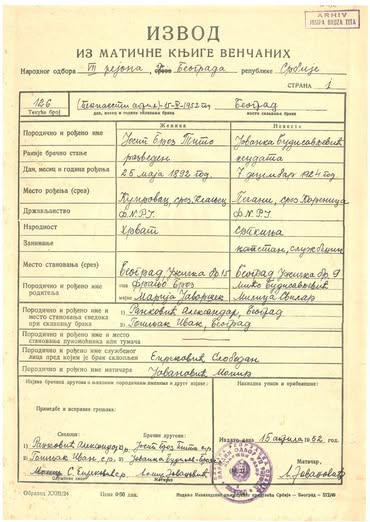 ARHIV
JOSIPA BROZA TITA
ИЗВОД
ИЗ МАТИЧНЕ КЊИГЕ ВЕНЧАНИХ
Народног одбора III рејона, Београда републике Србије
СТРАНА 1
126 15-IV-1952 год Београд
Текући број дан, месец и година склапања брака место склапања брака
Женика Невесте
Породично и рођено име Јосип Броз Тито Јованка Будисављевић
Раније брачно стање разведен неудата
Дан, месец и година рођења 25 маја 1892 год. 7 децембар 1924 год
Место рођења (срез) Кумровец, срез Клањец Пећани, срез Кореница
Држављанство Ф.Н.Р.Ј. Ф.Н.Р.Ј.
Народност Хрват Српкиња
Занимање капетан,
Место становања (срез) Београд, Ужичка бр 15 Београд Ужичка бр 9
Породично и рођено име родитеља оца Фрањо Броз Мићо Будисављевић
мајке Марија Јаворшек Милица Свилар
Породично и рођено име и место становања сведока при склапању брака 1) Ранковић Александар, Београд
2) Гошњак Иван, Београд
Породично и рођено име и место становања пуномоћника или тумача
Породично и рођено име службеног лица пред којим је брак склопљен Слободан
Породично и рођено име матичара Јовановић
Изјава брачних другова о њиховом породичном имену и друго
Накнадни уписи и прибелешке:
Примедбе и исправке грешака:
Сведоци: Брачни другови: Издато дана 15 априла 52 год.
1) Ранковић Александар с.р. 1) Јосип Броз Тито с.р.
2) Гошњак Иван с.р. 2) Јованка
Матичар,
Службено лице Матичар
Л. Јовановић
Образац XXIII/24 Цена 0·50 дин.